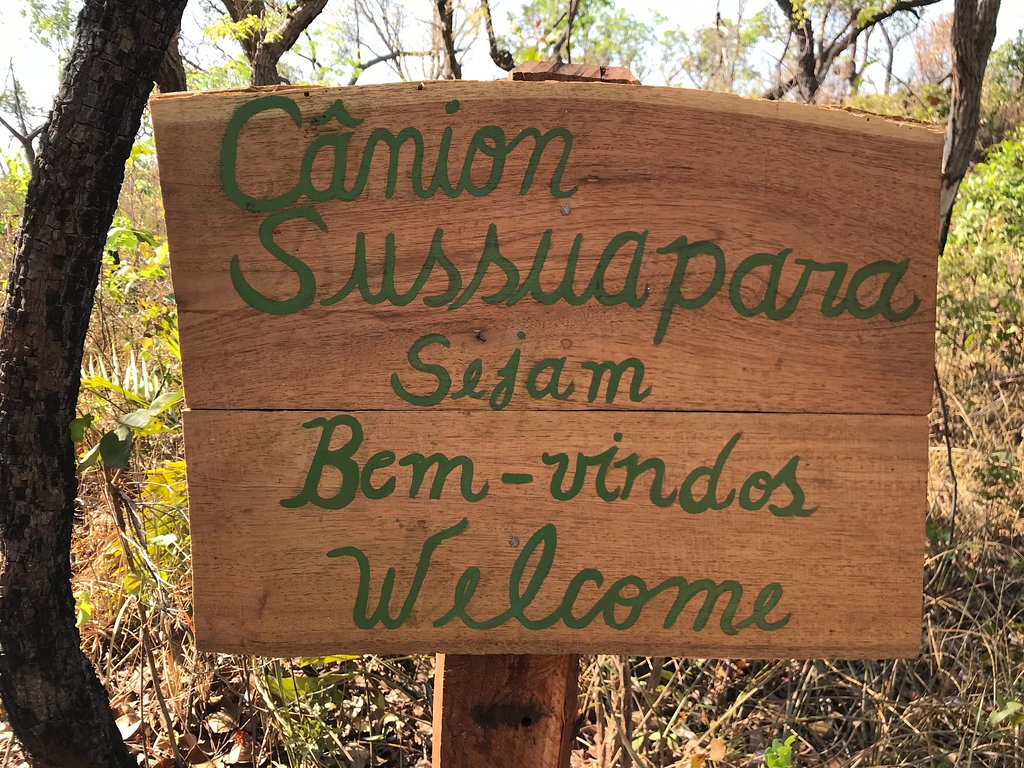 Cânion
Sussuapara
Sejam
Bem-vindos
Welcome